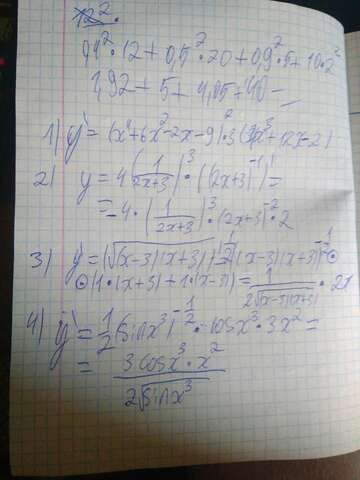 12².
0,4²·12+0,5²·20+0,9²·5+10·2²
1,92+5+4,05+40
1) y'=(x⁴+6x²-2x-9)²·3(4x³+12x-2)
2) y=4(1/(2x+3))³·((2x+3)⁻¹)'=
=-4·(1/(2x+3))³·(2x+3)⁻²·2
3) y'=(√(x-3)(x+3))'=1/2((x-3)(x+3))^(-1/2)⊙
⊙(1·(x+3)+1·(x-3))=1/(2√(x-3)(x+3))·2x
4) y'=1/2(sinx³)^(-1/2)·cosx³·3x²=
=3cosx³·x²/(2√sinx³)